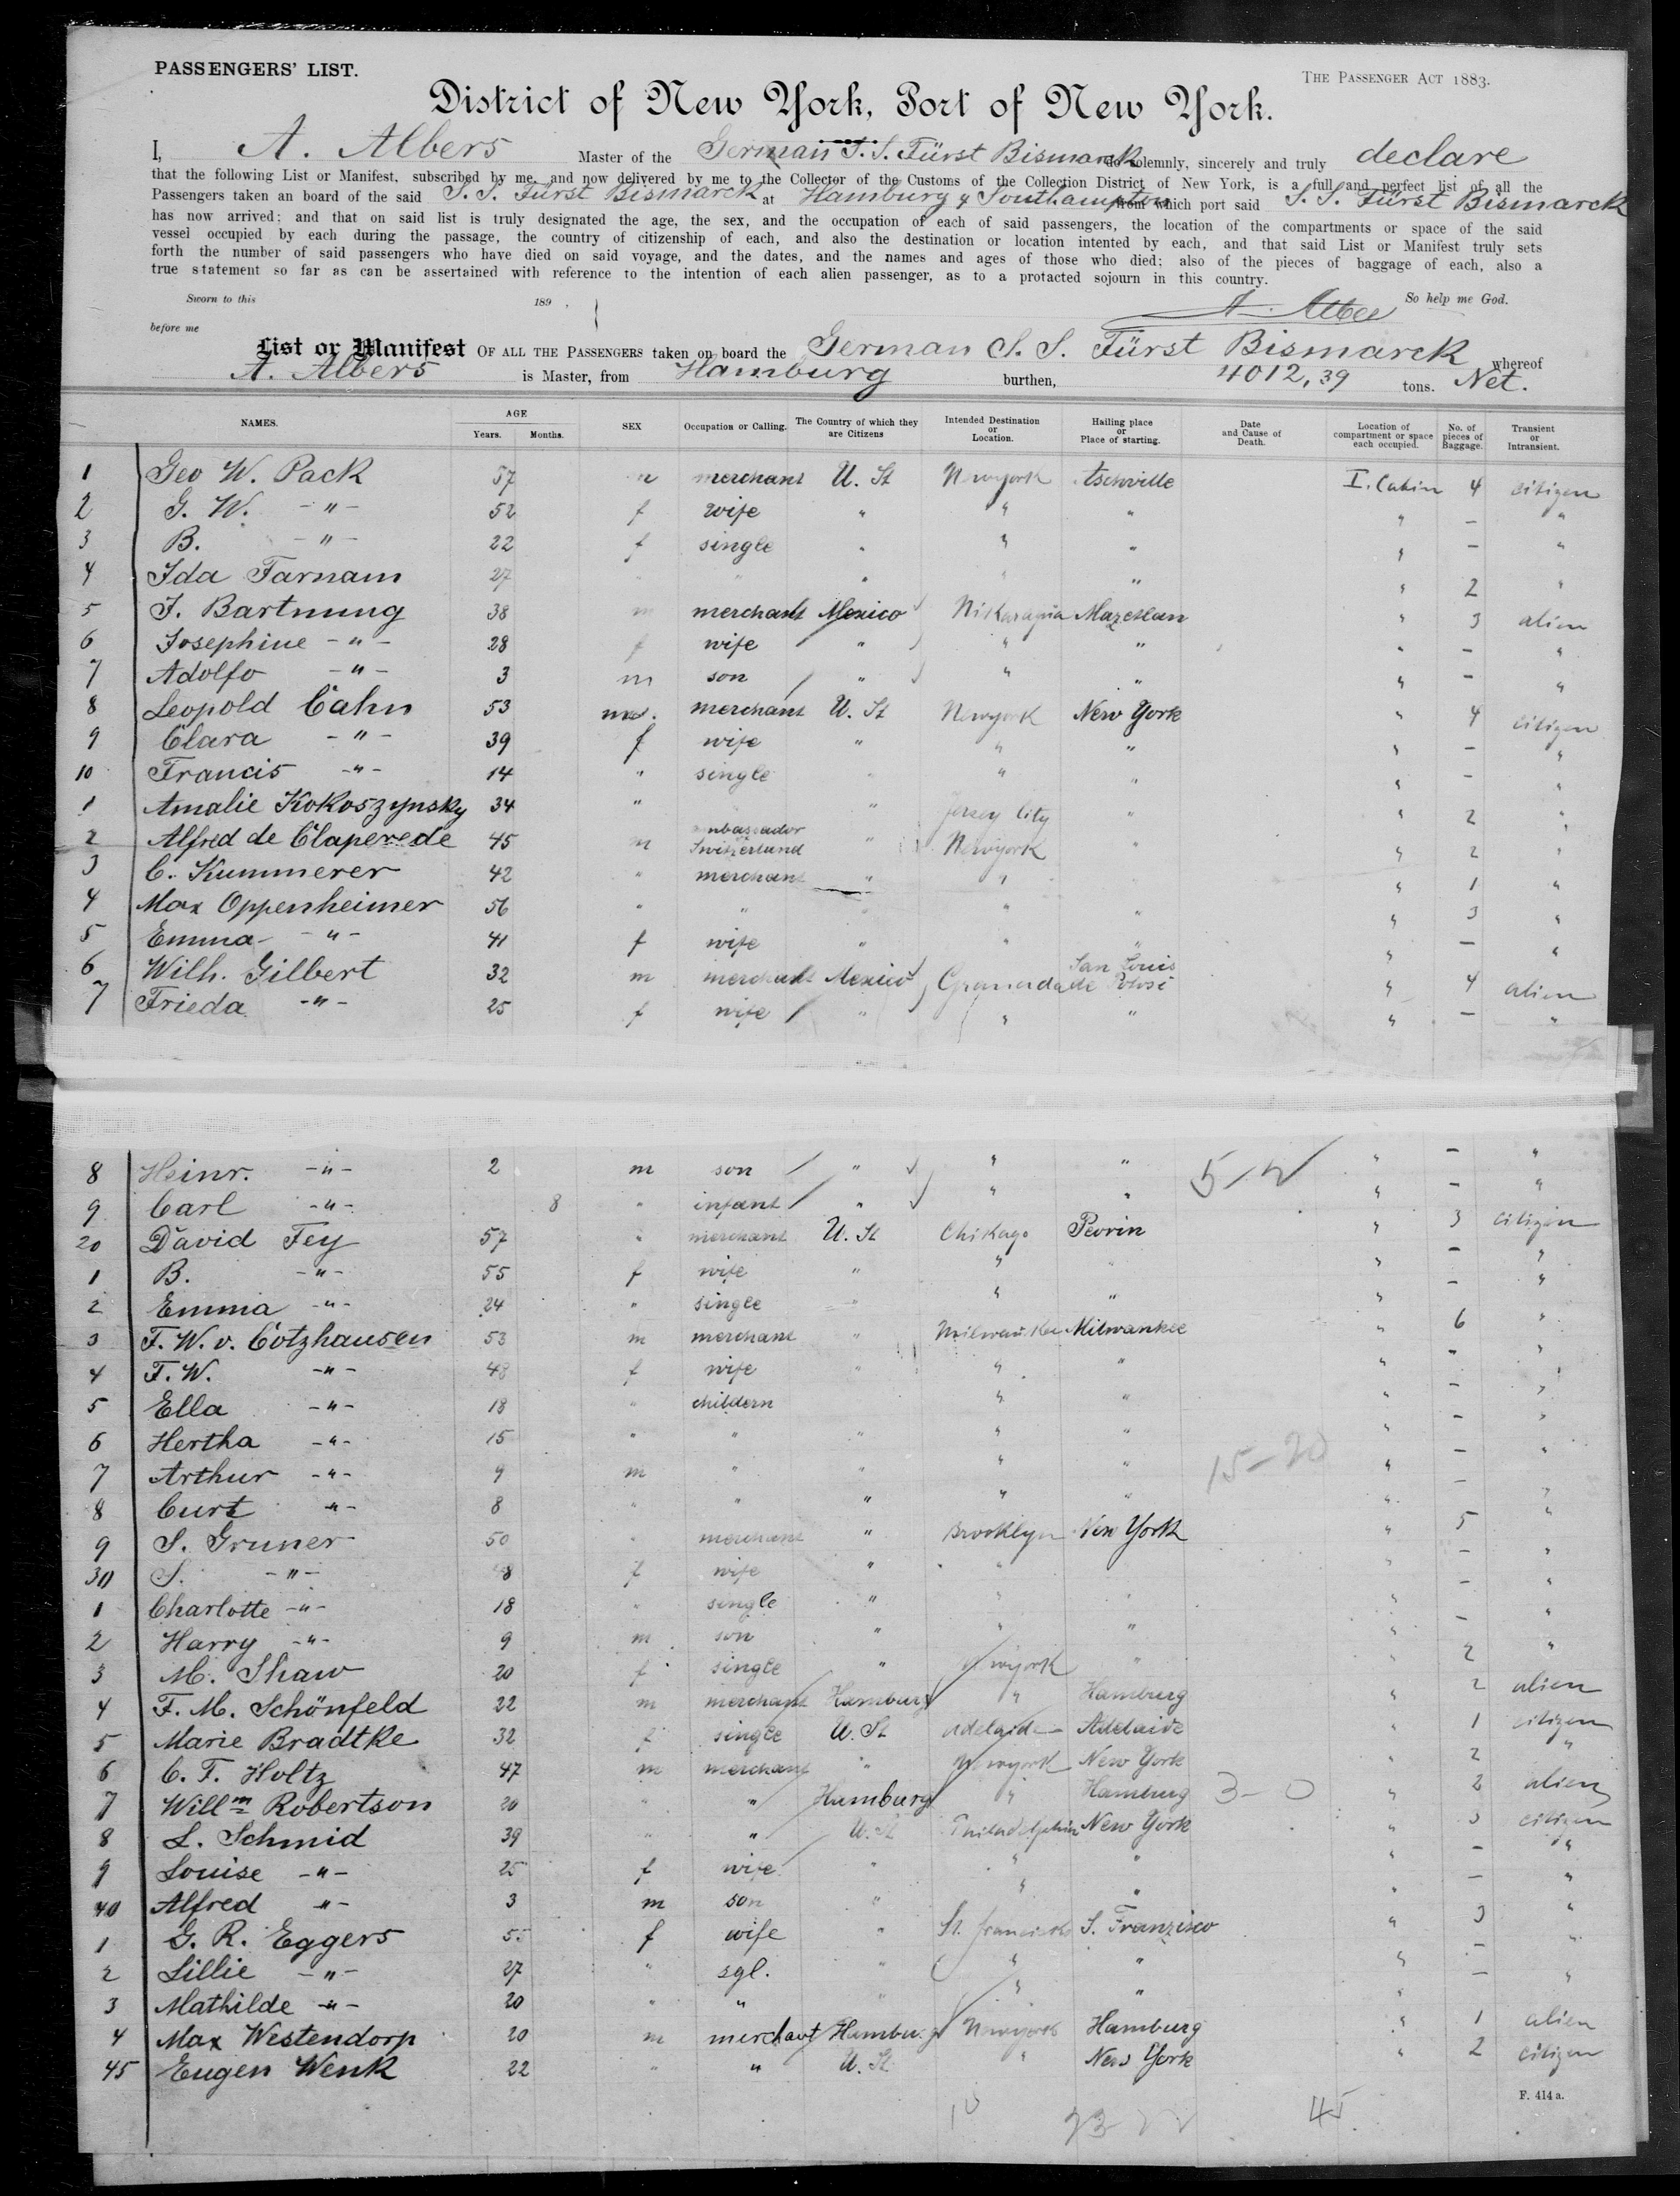 PASSENGERS' LIST.
THE PASSENGER ACT 1883.
District of New York, Port of New York.
I, A. Albers Master of the German S. S. Fürst Bismarck do solemnly, sincerely and truly declare
that the following List or Manifest, subscribed by me, and now delivered by me to the Collector of the Customs of the Collection District of New York, is a full and perfect list of all the
Passengers taken an board of the said S. S. Fürst Bismarck at Hamburg & Southampton from which port said S. S. Fürst Bismarck
has now arrived; and that on said list is truly designated the age, the sex, and the occupation of each of said passengers, the location of the compartments or space of the said
vessel occupied by each during the passage, the country of citizenship of each, and also the destination or location intented by each, and that said List or Manifest truly sets
forth the number of said passengers who have died on said voyage, and the dates, and the names and ages of those who died; also of the pieces of baggage of each, also a
true statement so far as can be assertained with reference to the intention of each alien passenger, as to a protacted sojourn in this country.
Sworn to this 189 . So help me God.
before me
List or Manifest OF ALL THE PASSENGERS taken on board the German S. S. Fürst Bismarck whereof
A. Albers is Master, from Hamburg burthen, 4012,39 tons. Net.
NAMES. AGE Years. Months. SEX Occupation or Calling. The Country of which they are Citizens Intended Destination or Location. Hailing place or Place of starting. Date and Cause of Death. Location of compartment or space each occupied. No. of pieces of Baggage. Transient or Intransient.
1 Geo W. Pack 57 m merchant U. St Newyork Aschville I. Cabin 4 citizen
2 G. W. -"- 52 f wife " " " " - "
3 B. -"- 22 f single " " " " - "
4 Ida Farnam 27 " " " " " " 2 "
5 F. Bartnung 38 m merchant Mexico Nikaragua Mazetlan " 3 alien
6 Josephine -"- 28 f wife " " " " - "
7 Adolfo -"- 3 m son " " " " - "
8 Leopold Cahn 53 m merchant U. St Newyork New York " 4 citizen
9 Clara -"- 39 f wife " " " " - "
10 Francis -"- 14 " single " " " " - "
1 Amalie Kokoszynsky 34 " " Jersey City " " 2 "
2 Alfred de Claperede 45 m ambassador Switzerland " Newyork " " 2 "
3 C. Kummerer 42 " merchant " " " 1 "
4 Max Oppenheimer 56 " " " " " " 3 "
5 Emma -"- 41 f wife " " " " - "
6 Wilh. Gilbert 32 m merchant Mexico Granada San Louis de Potosi " 4 alien
7 Frieda -"- 25 f wife " " " " - "
8 Heinr. -"- 2 m son " " " " - "
9 Carl -"- 8 " infant " " " " - "
20 David Fey 57 " merchant U. St Chikago Peorin " 3 citizen
1 B. -"- 55 f wife " " " " - "
2 Emma -"- 24 " single " " " " - "
3 F. W. v. Cotzhausen 53 m merchant " Milwaukee Milwankee " 6 "
4 F. W. -"- 48 f wife " " " " - "
5 Ella -"- 18 " childern " " " - "
6 Hertha -"- 15 " " " " " " - "
7 Arthur -"- 9 m " " " " " - "
8 Curt -"- 8 " " " " " " - "
15-20
9 S. Gruner 50 " merchant " Brooklyn New York " 5 "
30 S. -"- 48 f wife " " " - "
1 Charlotte -"- 18 " single " " " " - "
2 Harry -"- 9 m son " " " " - "
3 M. Shaw 20 f single " Newyork " " 2 "
4 F. M. Schönfeld 22 m merchant Hamburg " Hamburg " 2 alien
5 Marie Bradtke 32 f single U. St Adelaide Adelaide " 1 citizen
6 C. F. Holtz 47 m merchant " Newyork New York " 2 "
7 Willm Robertson 20 " " Hamburg " Hamburg 3-0 " 2 alien
8 L. Schmid 39 " " U. St Philadelphia New York " 3 citizen
9 Louise -"- 25 f wife " " " " - "
40 Alfred -"- 3 m son " " " " - "
1 G. R. Eggers 55 f wife " St. Francisko S. Franzisco " 3 "
2 Lillie -"- 27 " sgl. " " " " - "
3 Mathilde -"- 20 " " " " " " - "
4 Max Westendorp 20 m merchant Hamburg Newyork Hamburg " 1 alien
45 Eugen Wenk 22 " " U. St. " New York " 2 citizen
F. 414 a.
45